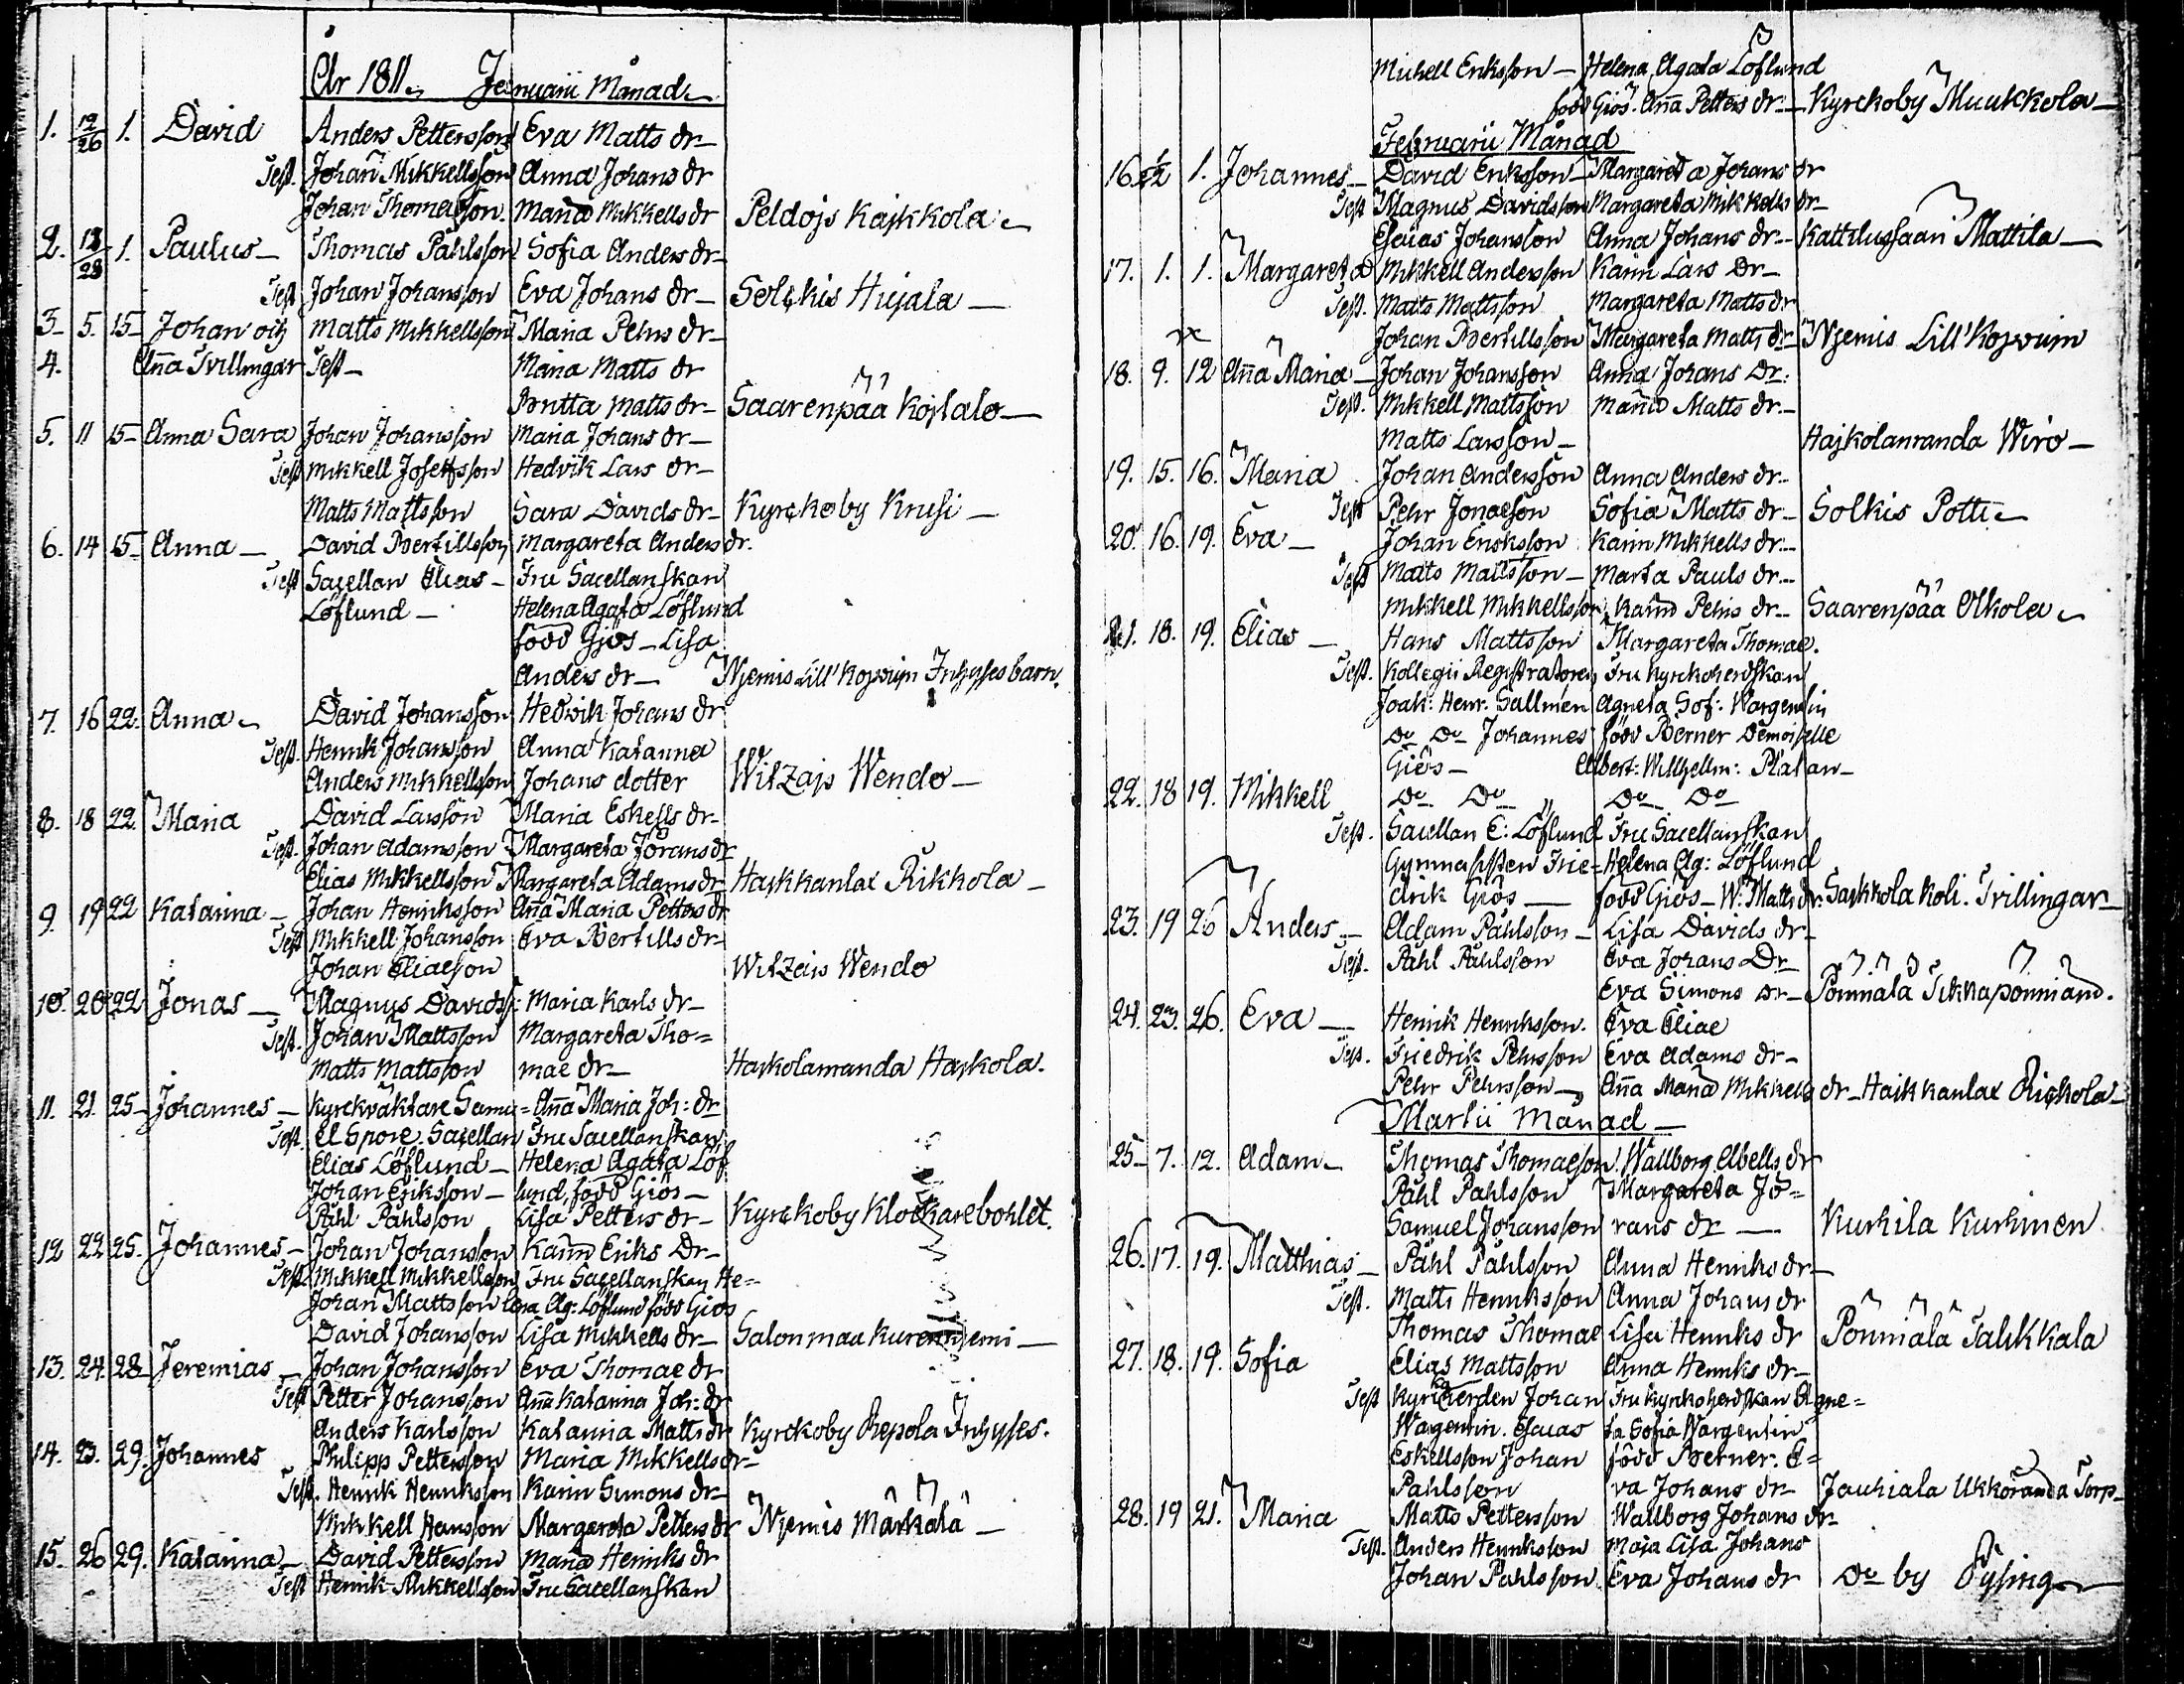 År 1811. Januarii Månad
1. 12/26 1. David Anders Pettersson Eva Matts dr
Test. Johan Mikkellsson Anna Johans dr
Johan Thomasson Maria Mikkells dr Peldojs Kajkkola
2. 1. Paulus Thomas Pahlsson Sofia Anders dr
Test Johan Johansson Eva Johans dr Solkis Hujala
3. 5. 15 Johan och Matts Mikkellsson Maria Pehrs dr
4. Aña Tvillingar Test Maria Matts dr
Britta Matts dr Saarenpää Kojlalo
5. 11 15 Anna Sara Johan Johansson Maria Johans dr
Test Mikkell Joseffsson Hedvik Lars dr
Matts Mattsson Sara Davids dr Kyrckoby Knusi
6. 14 15 Anna David Bertillsson Margareta Anders dr.
Test Sacellan Elias Fru Sacellanskan
Löflund Helena Agata Löflund
född Giös Lisa
Anders dr Njemis Lill' Kojvuin Inhyses barn.
7. 16 22 Anna David Johansson Hedvik Johans dr
Test. Henrik Johansson Anna Katarina
Anders Mikkellsson Johans dotter Witzajs Wendo
8. 18 22. Maria David Larsson Maria Eskells dr
Test. Johan Adamsson Margareta Jörans dr
Elias Mikkellsson Margareta Adams dr Hajkkanlax Rikkola
9. 19 22 Katarina Johan Henriksson Aña Maria Petters dr
Test Mikkell Johansson Eva Bertills dr
Johan Eliaeson Witzais Wendo
10. 20 22 Jonas Magnus Davids: Maria Karls dr
Test. Johan Mattsson Margareta Tho=
Matts Mattsson mae dr Hajkolamranda Hajkola.
11. 21. 25 Johannes Kyrckväktare Samu= Aña Maria Joh: dr
Test. el Spore. Sacellan Fru Sacellanskan
Elias Löflund Helena Agata Löf
Johan Eriksson lund, född Giös
Påhl Påhlsson Lisa Petters dr Kyrckoby Klockarebohlet.
12 22 25. Johannes Johan Johansson Karin Eriks Dr
Test. Mikkell Mikkellsson Fru Sacellanskan He=
Johan Mattsson lena Ag: Löflund född Giös
David Johansson Lisa Mikkells dr Salonmaa Kurenniemi
13. 24. 28 Jeremias Johan Johansson Eva Thomae dr
Test Petter Johansson Aña Katarina Joh: dr
Anders Karlsson Katarina Matts dr Kyrckoby Repola Inhyses.
14. 23. 29. Johannes Philipp Pettersson Maria Mikkells dr
Test. Henrik Henriksson Karin Simons dr
Mikkell Hansson Margareta Petters dr Njemis Märkälä
15. 26 29. Katarina David Pettersson Maria Henriks dr
Test Henrik Mikkellsson Fru Sacellanskan
Mickell Eriksson Helena Agata Löflund
född Giös. Aña Petters dr. Kyrckoby Muukkola
Februarii Månad
16. 1. Johannes David Eriksson Margareta Johans dr
Test Magnus Davidsson Margareta Mikkells dr
Esaias Johansson Anna Johans dr Kattilussaari Mattila
17. 1. 1. Margareta Mikkell Andersson Karin Lars Dr
Test. Matts Mattsson Margareta Matts dr
Johan Bertillsson Margareta Matts dr Njemis Lill' Kojvuin
18. 9. 12 Aña Maria Johan Johansson Anna Johans Dr:
Test. Mikkell Mattsson Maria Matts dr
Matts Larsson Hajkolamranda Wiro
19. 15. 16. Maria Johan Andersson Anna Anders dr
Test Pehr Jonaeson Sofia Matts dr Solkis Potti
20. 16. 19. Eva Johan Ericksson Karin Mikkells dr
Test Matts Mattsson Marta Pauls dr
Mikkell Mikkellsson Karin Pehrs dr Saarenpää Olkola
21. 18. 19. Elias Hans Mattsson Margareta Thomae.
Test. Kollegii Registratoren Fru Kyrckoherdskan
Joak: Henr: Sallmén Agneta Sof: Wargentin
Do Do Johannes född Berner Demoiselle
Giös Albert: Willhellm: Platan
22. 18 19. Mikkell Do Do Do Do
Test. Sacellan E: Löflund Fru Sacellanskan
Gymnasisten Frie= Helena Ag: Löflund
drik Giös född Giös W: Matts dr: Sakkola Koli. Tvillingar
23. 19 26 Anders Adam Påhlsson Lisa Davids dr
Test. Påhl Påhlsson Eva Johans Dr
Eva Simons dr
24. 23. 26. Eva Henrik Henriksson. Eva Eliae
Test. Friedrik Pehrsson Eva Adams dr
Pehr Pehrsson Aña Maria Mikkells dr Haikkanlax Rickola
Martii Månad
25 7. 12. Adam Thomas Thomaeson Wallborg Abells dr
Påhl Pahlsson Margareta Jö=
Samuel Johansson rans dr Kurkila Kurkinen
26. 17. 19. Matthias Påhl Påhlsson Anna Henriks dr
Test. Matts Henriksson Anna Johans dr
Thomas Thomae Lisa Henriks dr Ponniala Talikkala
27. 18. 19. Sofia Elias Mattsson Anna Henriks dr
Test Kyrckoherden Johan Fru Kyrckoherdskan Agne=
Wargentin. Esaias ta Sofia Wargentin
Eskellsson Johan född Berner. E=
Pahlsson va Johans dr Jauhiala Ukkoranda Torp
28. 19 21. Maria Matts Pettersson Wallborg Johans dr
Test. Anders Henriksson Maja Lisa Johans
Johan Pahlsson Eva Johans dr Do by Pysing